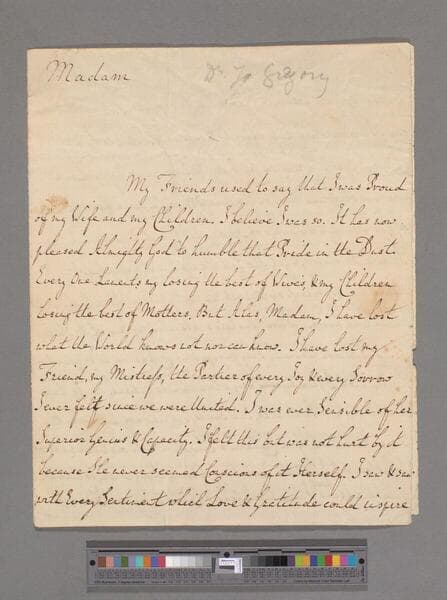 Madam
Dr Jo Gregory
My Friends used to say that I was Proud
of my Wife and my Children. I believe I was so. It has now
pleased Almighty God to humble that Pride in the Dust.
Every One Laments my losing the best of Wives, & my Children
losing the best of Mothers. But Alas, Madam, I have lost
what the World knows not nor can know. I have lost my
Friend, my Mistress, the Partner of every Joy & every Sorrow
I ever felt since we were United. I was ever Sensible of her
Superior Genius & Capacity. I felt this but was not hurt by it
because She never seemed Conscious of it Herself. I saw & saw
with Every Sentiment which Love & Gratitude could inspire